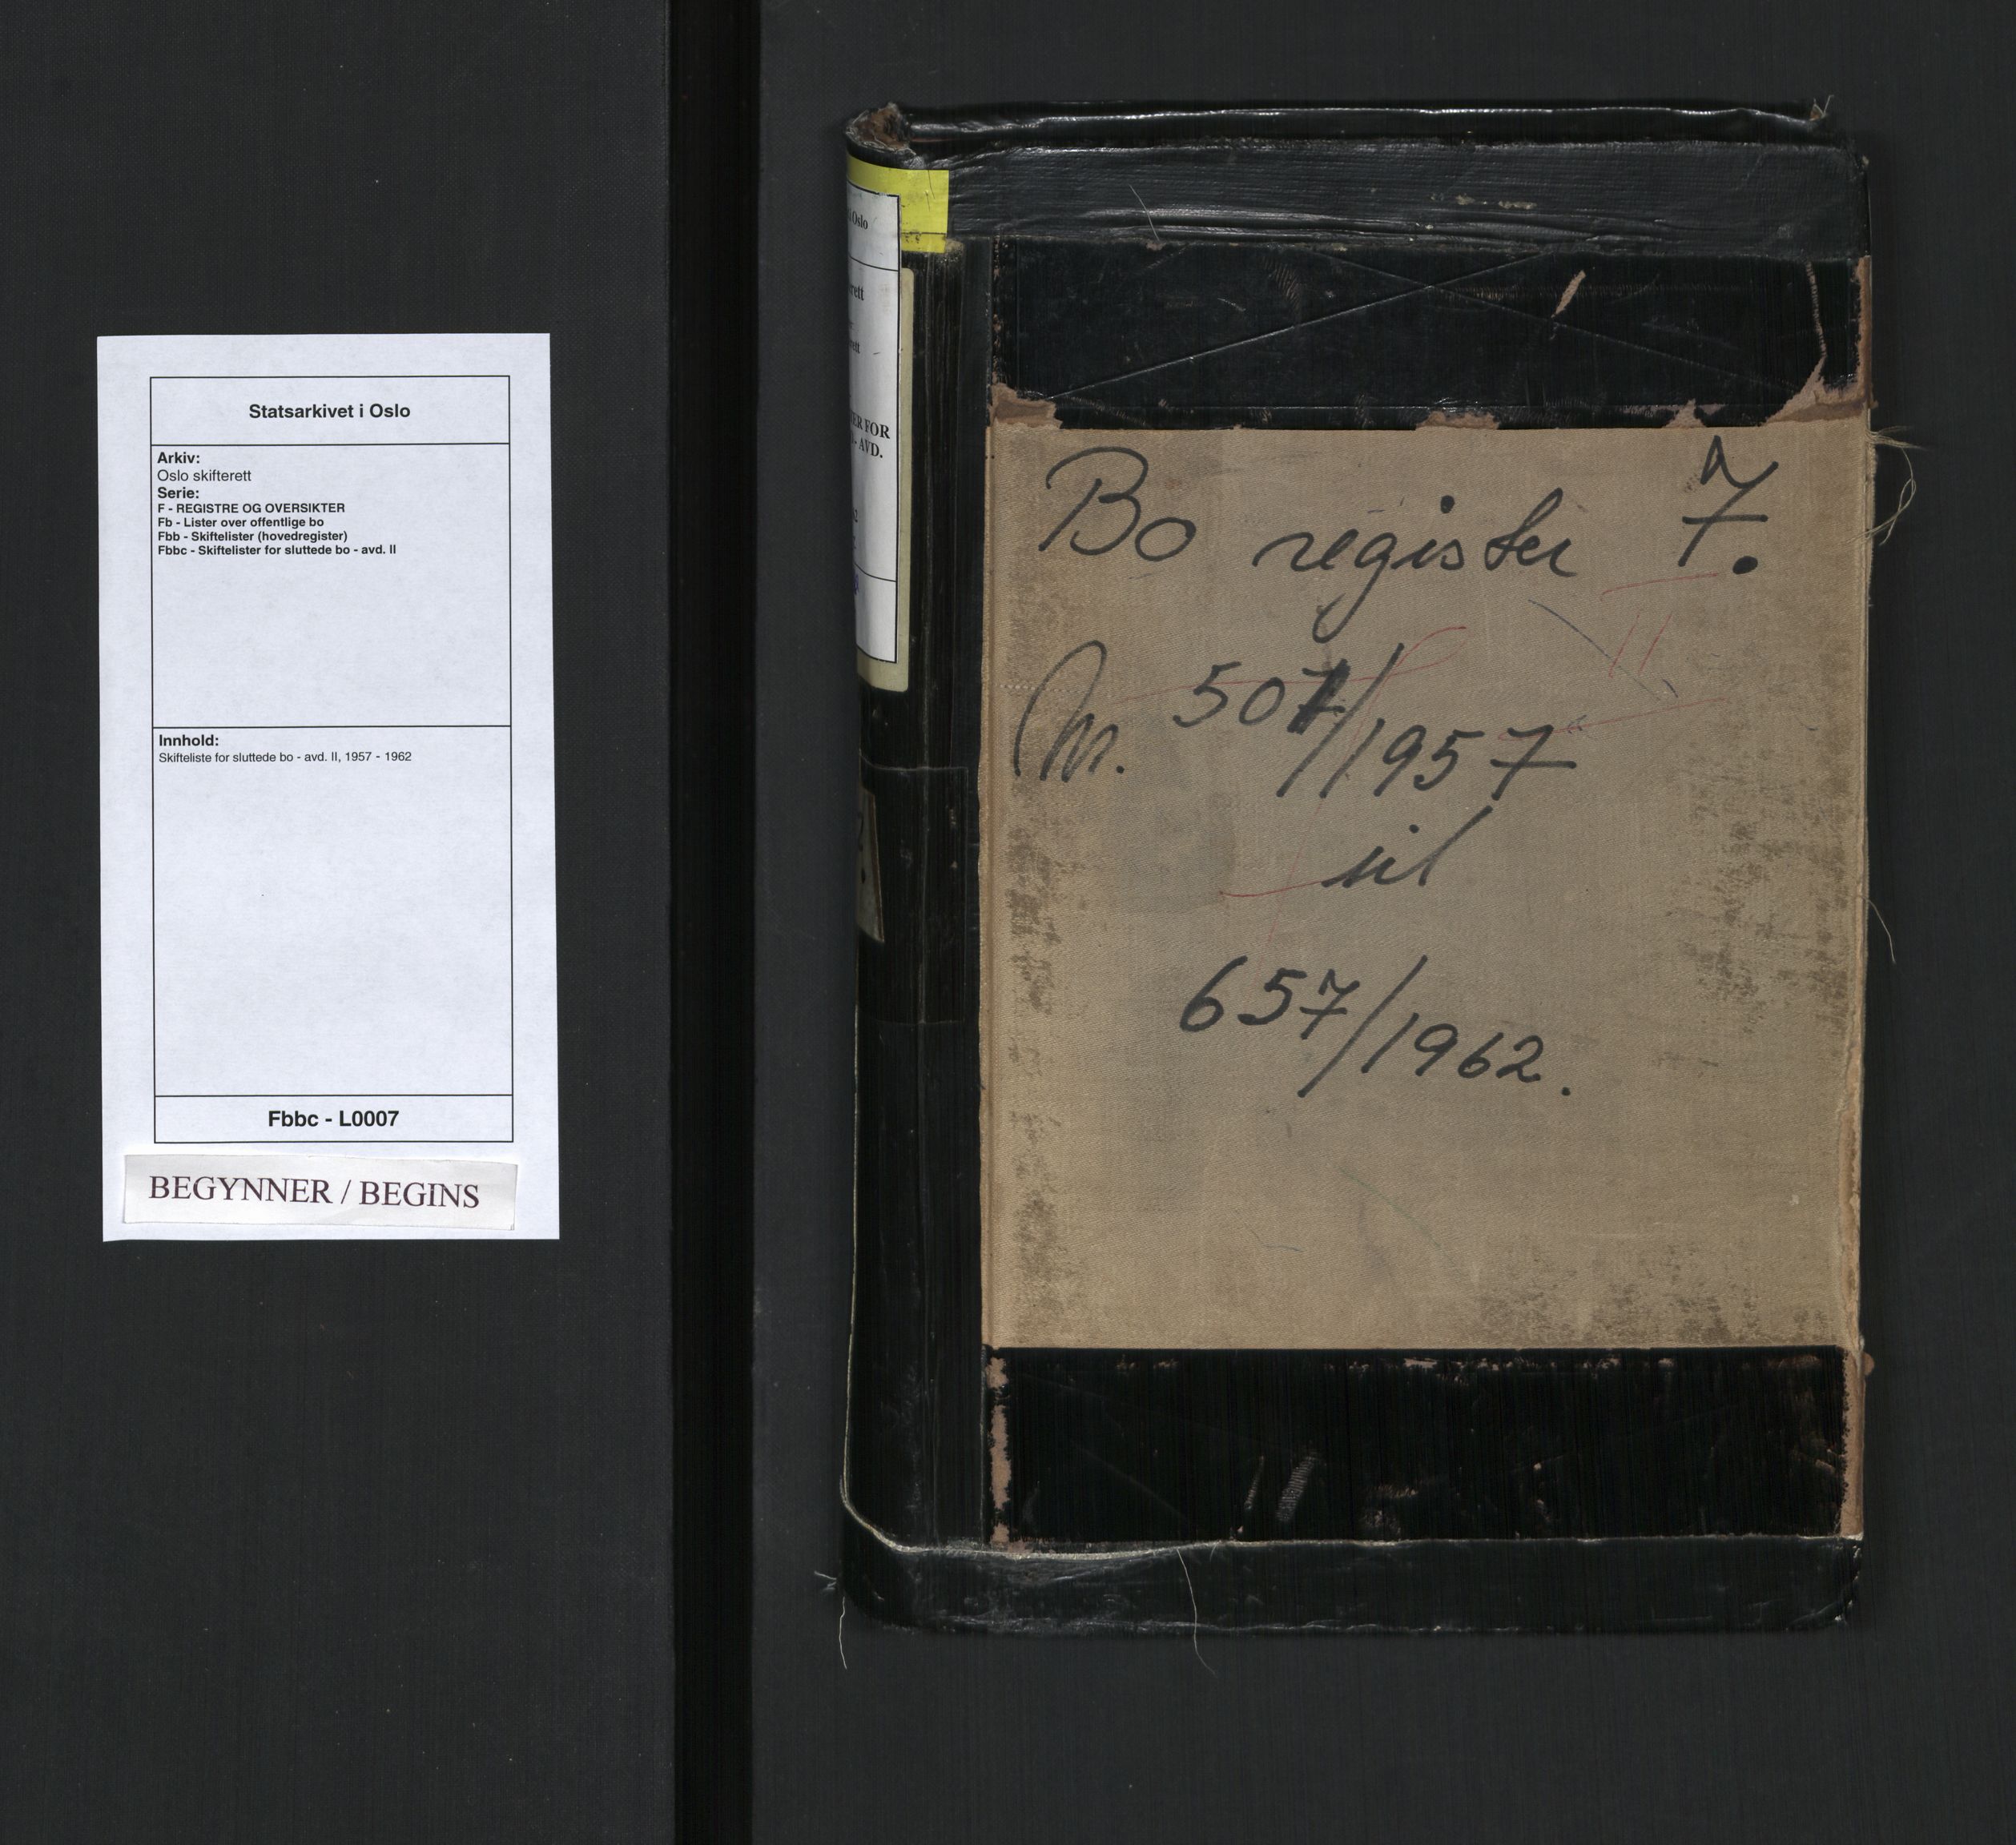 Statsarkivet i Oslo
Arkiv:
Oslo skifterett
Serie:
F - REGISTRE OG OVERSIKTER
Fb - Lister over offentlige bo
Fbb - Skiftelister (hovedregister)
Fbbc - Skiftelister for sluttede bo - avd. II
Innhold:
Skifteliste for sluttede bo - avd. II, 1957 - 1962
Fbbc - L0007
BEGYNNER / BEGINS
i Oslo
rett
rett
ER FOR
- AVD.
Bo register 7.
II
Nr. 507/1957
til
657/1962.